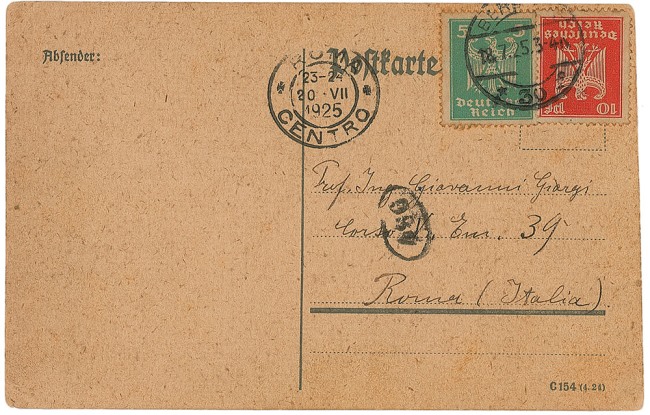 Absender:
Postkarte
23-24
20 · VII
1925
CENTRO
5
Deutsches
Reich
10
Deutsches
Reich
30
Prof. Ing. Giovanni Giorgi
Corso V. Em. 39
Roma (Italia)
C 154 (4. 24)